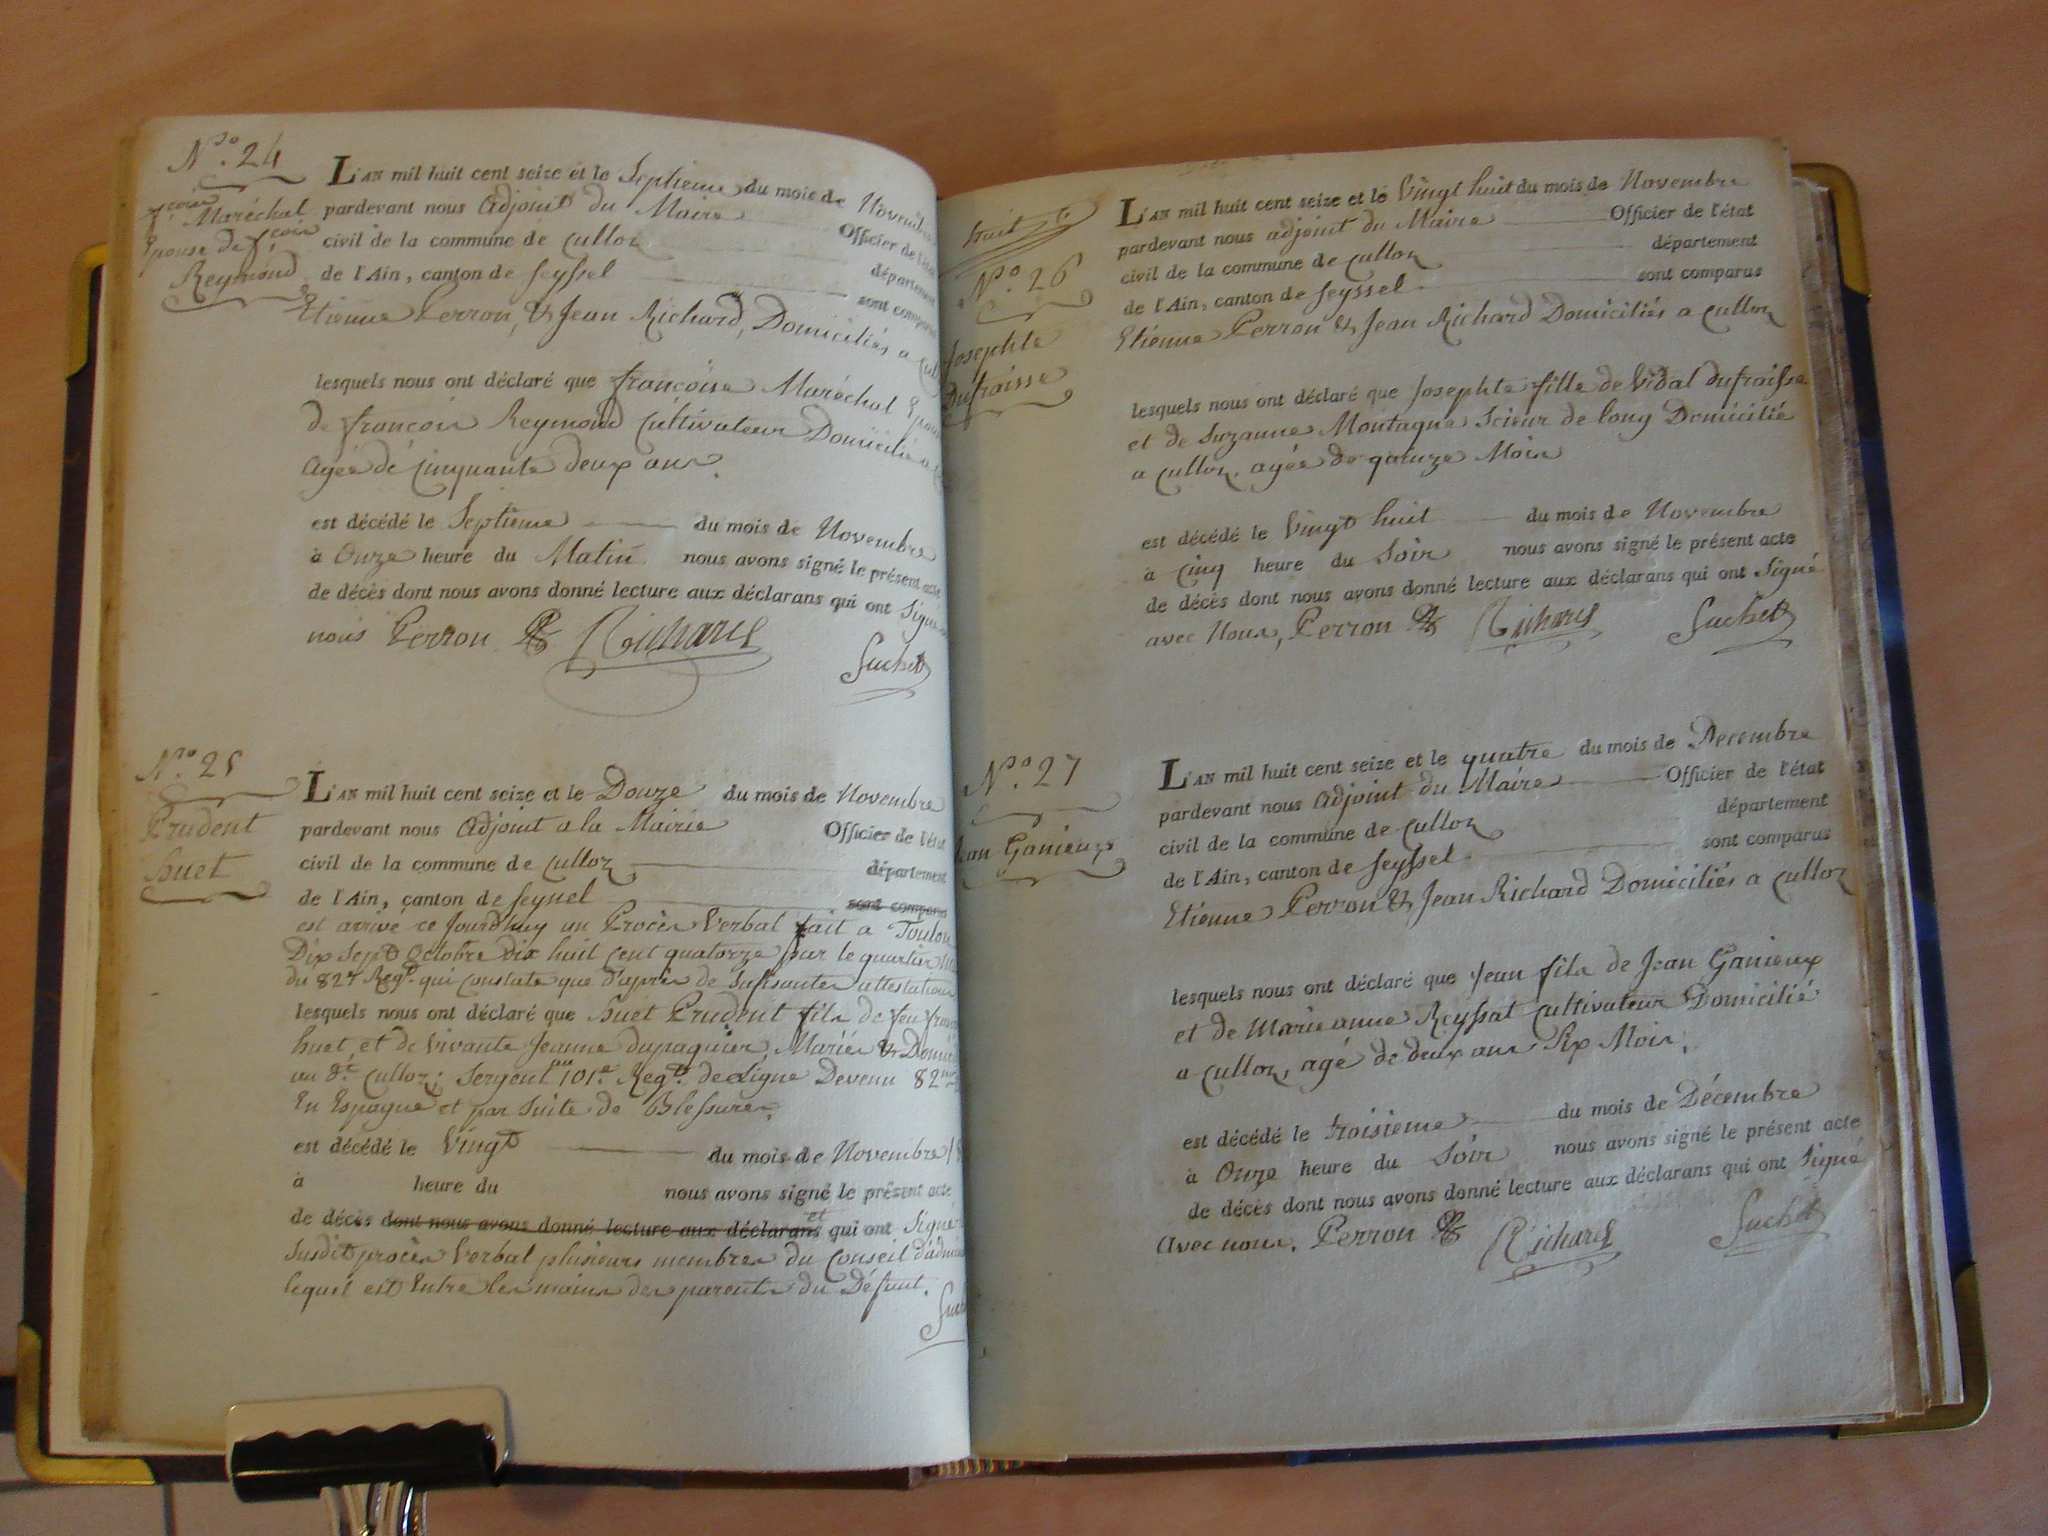 N.ro 24
f.çoise Maréchal
Epouse de f.çois
Reymond
L'AN mil huit cent seize et le Septieme du mois de Novembre
pardevant nous Adjoint du Maire Officier de l'état
civil de la commune de Culloz département
de l'Ain, canton de Seyssel sont comparus
Etienne Perron, & Jean Richard, Domiciliés a
lesquels nous ont déclaré que françoise Maréchal
de françois Reymond Cultivateur Domicilié a
agée de Cinquante deux ans.
est décédé le Septieme du mois de Novembre
à Onze heure du Matin nous avons signé le présent acte
de décès dont nous avons donné lecture aux déclarans qui ont Signé
nous Perron Richard
Suchet
N.ro 25
Prudent
huet
L'AN mil huit cent seize et le Douze du mois de Novembre
pardevant nous Adjoint a la Mairie Officier de l'état
civil de la commune de Culloz département
de l'Ain, canton de Seyssel sont comparus
est arrivé ce Jourdhuy un Procès Verbal fait a Toulon
Dix Sept Octobre dix huit cent quatorze par le quartier
du 82e Regt. qui constate que d'après de Sufisantes attestations
lesquels nous ont déclaré que huet Prudent fils de feu
huet, et de vivante Jeanne dupaquier, Mariés &
au dt. Culloz; Sergent au 101.e Regt. de Ligne Devenu 82me
En Espagne et par Suite de Blessures,
est décédé le Vingt du mois de Novembre
à heure du nous avons signé le présent acte
de décès dont nous avons donné lecture aux déclarans et qui ont Signé
Susdit procès Verbal plusieurs membres du Conseil
lequel est Entre les mains des parents du Défunt.
huit
N.ro 26
Josephte
Dufraisse
L'AN mil huit cent seize et le Vingt huit du mois de Novembre
pardevant nous adjoint du Maire Officier de l'état
civil de la commune de Culloz département
de l'Ain, canton de Seyssel sont comparus
Etienne Perron & Jean Richard Domiciliés a Culloz
lesquels nous ont déclaré que Josephte fille de Vidal dufraisse
et de Suzanne Montagne Scieur de long Domicilié
a Culloz, agée de quinze Mois
est décédé le Vingt huit du mois de Novembre
à Cinq heure du Soir nous avons signé le présent acte
de décès dont nous avons donné lecture aux déclarans qui ont Signé
avec Nous, Perron Richard Suchet
N.ro 27
Jean Ganieux
L'AN mil huit cent seize et le quatre du mois de Decembre
pardevant nous Adjoint du Maire Officier de l'état
civil de la commune de Culloz département
de l'Ain, canton de Seyssel sont comparus
Etienne Perron & Jean Richard Domiciliés a Culloz
lesquels nous ont déclaré que Jean fils de Jean Ganieux
et de Marie anne Reyssat Cultivateur Domicilié
a Culloz, agé de deux ans Six Mois,
est décédé le troisieme du mois de Décembre
à Onze heure du Soir nous avons signé le présent acte
de décès dont nous avons donné lecture aux déclarans qui ont Signé
Avec nous. Perron Richard Suchet